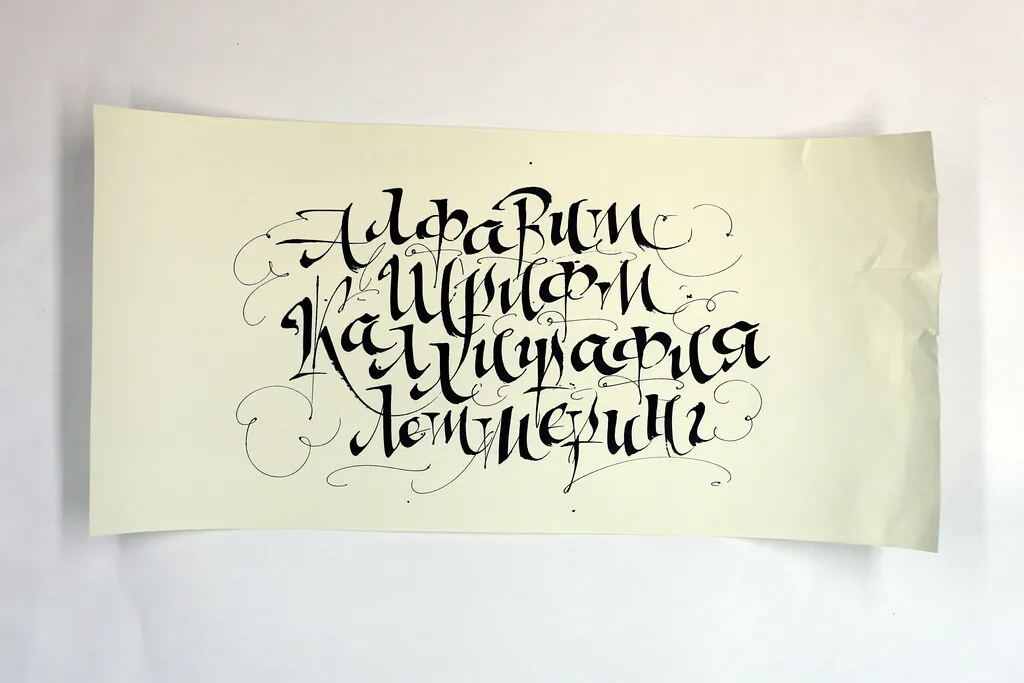 Алфавит
Шрифт
Каллиграфия
Леттеринг